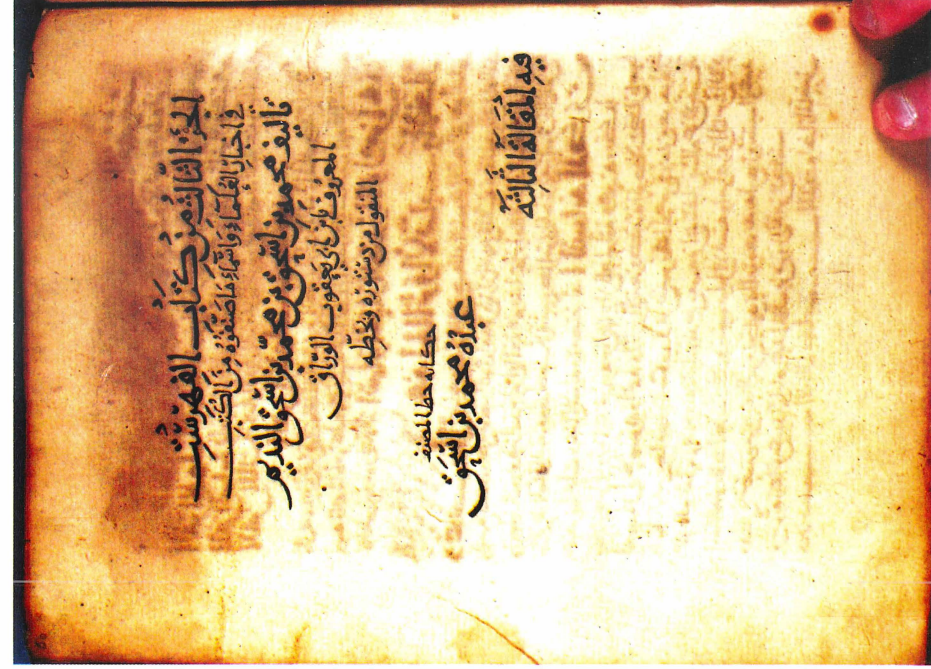 الجزء الثالث من كتاب الفهرست
في اخبار العلماء واسماء ما صنفوه من الكتب
تاليف محمد بن اسحق بن محمد بن اسحق النديم
المعروف بابن ابي يعقوب الوراق
المنقول من دستوره وبخطه
حكاية خط المصنف
عبده محمد بن اسحق
فيه المقالة الثالثة